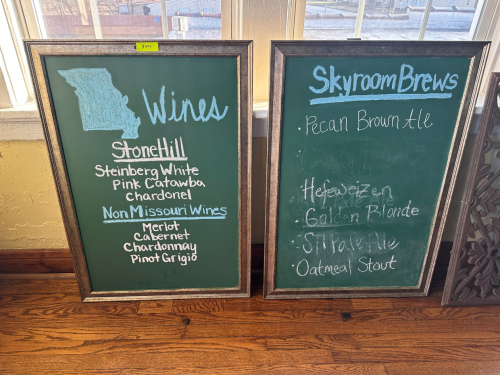 Wines
StoneHill
Steinberg White
Pink Catawba
Chardonel
Non Missouri Wines
Merlot
Cabernet
Chardonnay
Pinot Grigio
Skyroom Brews
· Pecan Brown Ale
Hefeweizen
· Golden Blonde
Pale Ale
· Oatmeal Stout